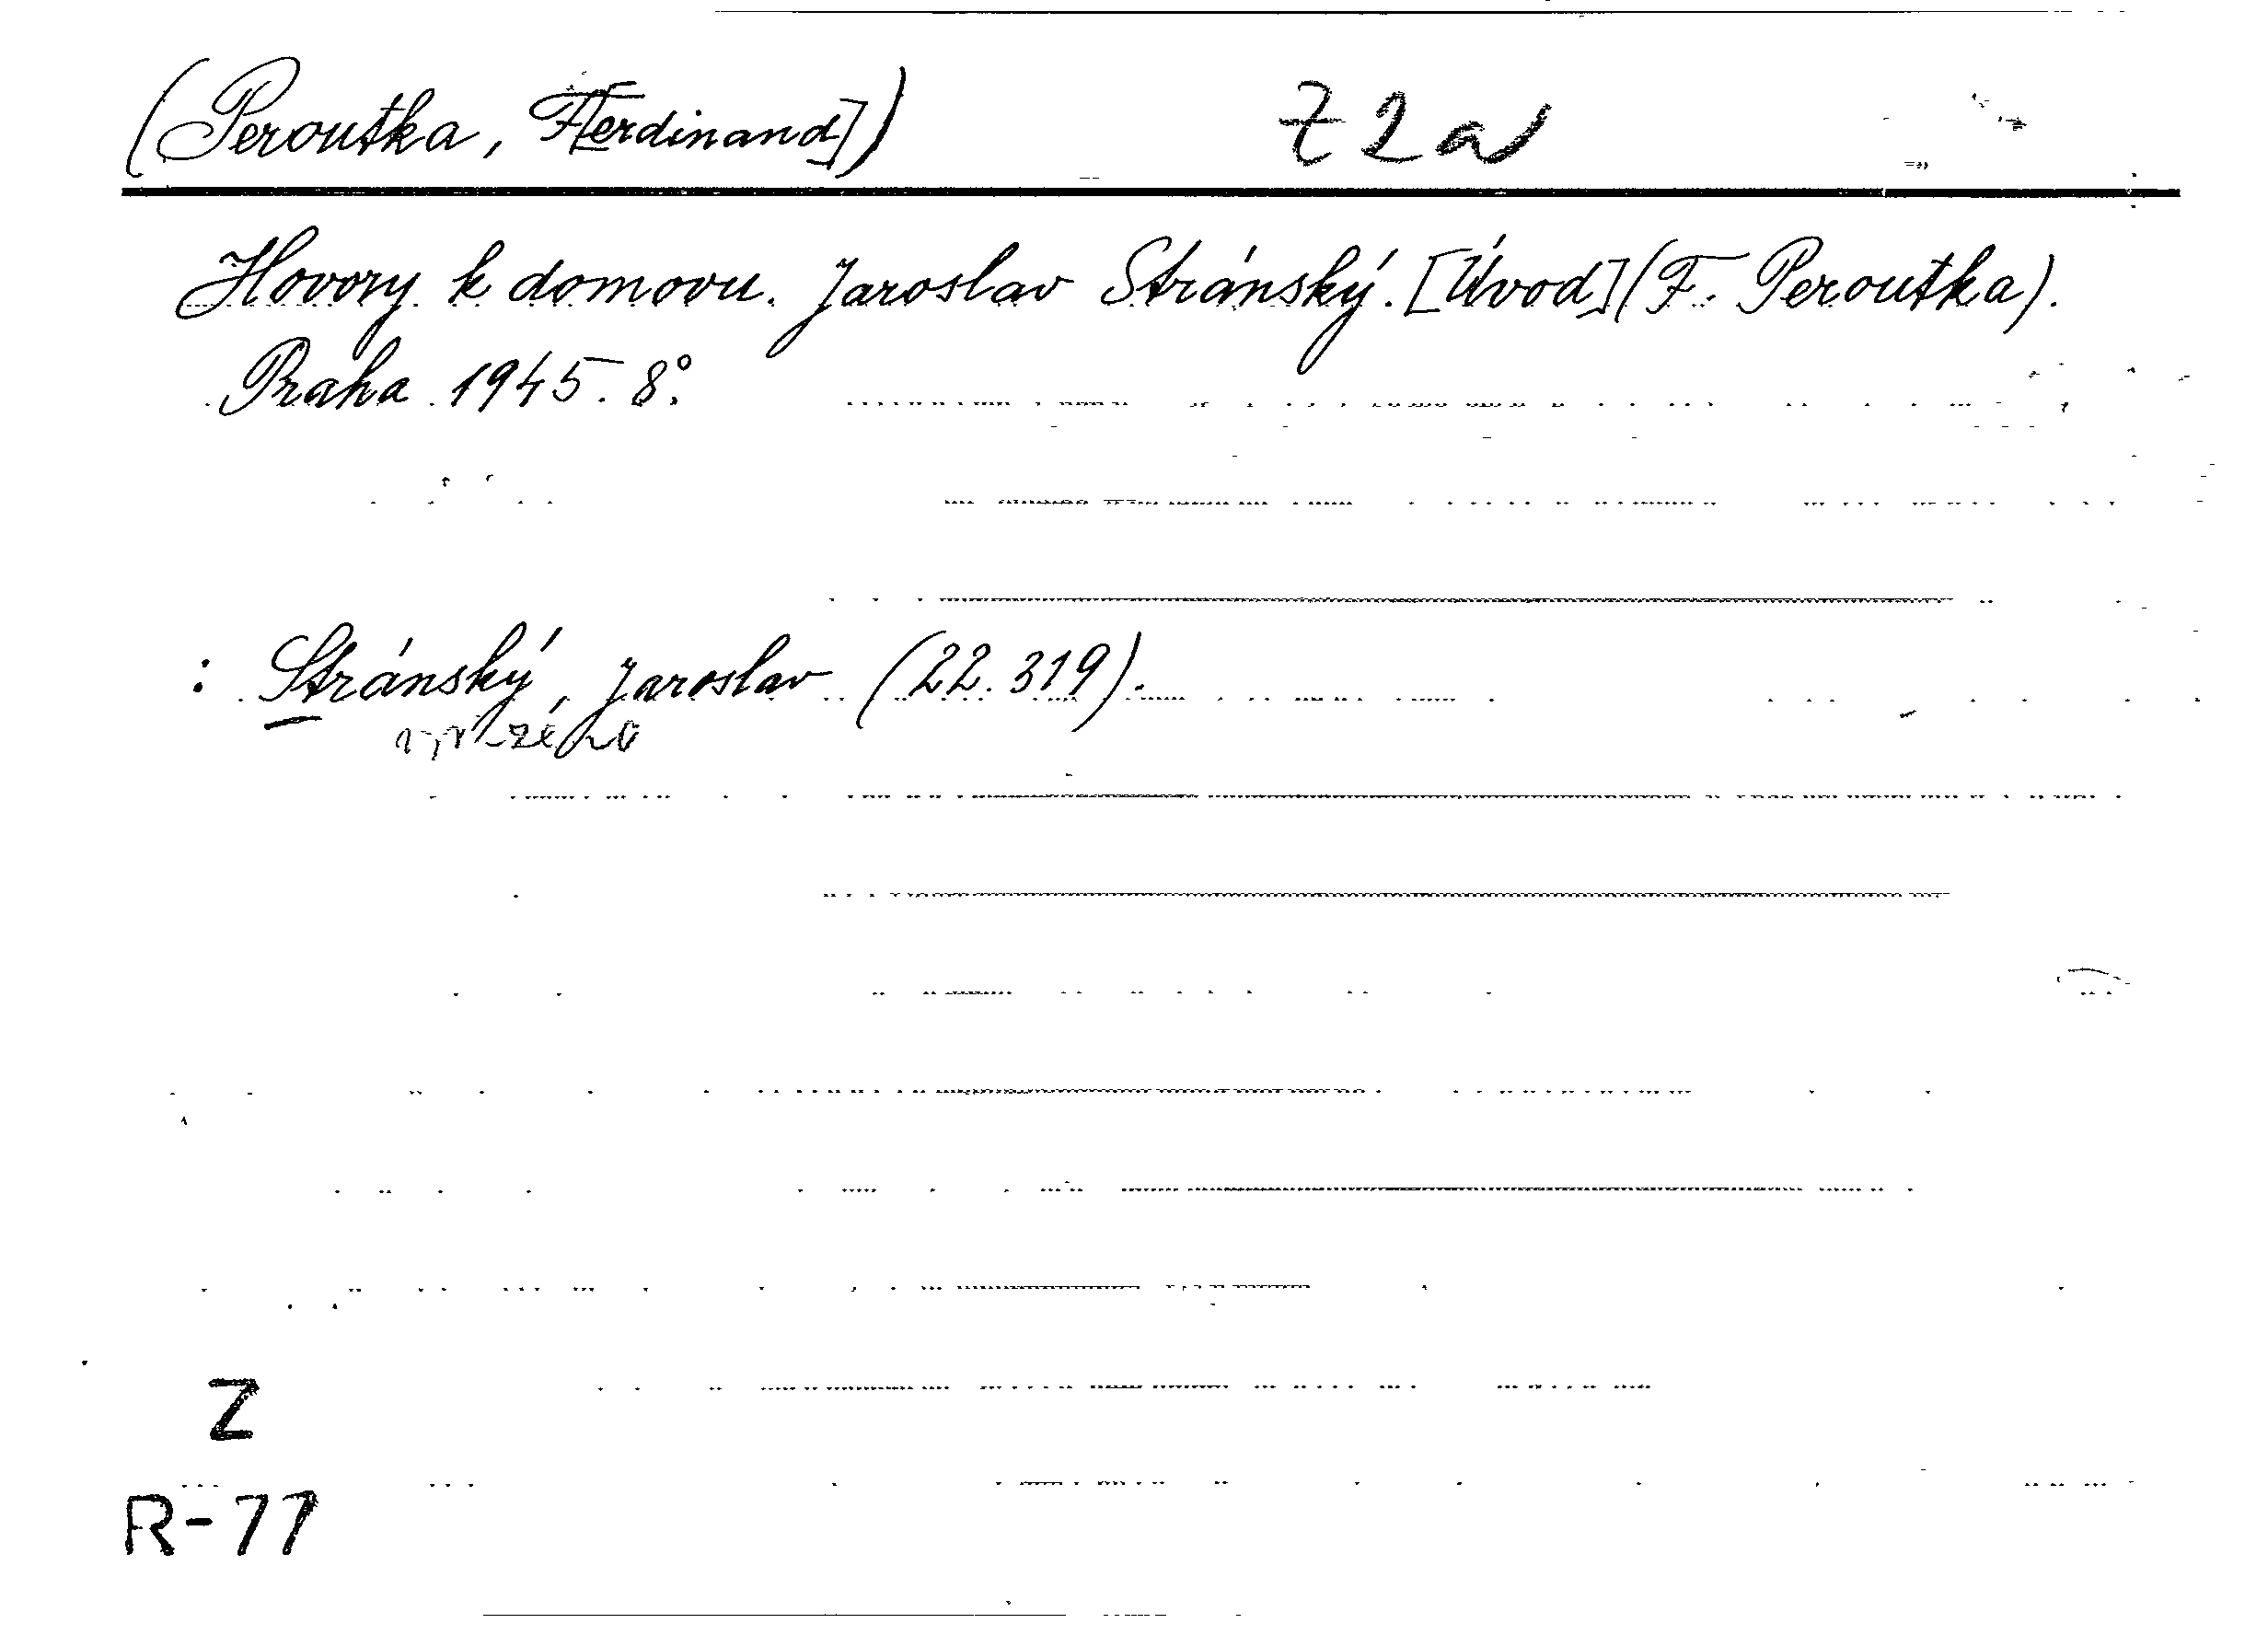 (Peroutka, F[erdinand]) Z 2 a
Hovory k domovu. Jaroslav Stránský. [Úvod] (F. Peroutka).
Praha 1945. 8°.
: Stránský, Jaroslav (22.319).
Z
R-77